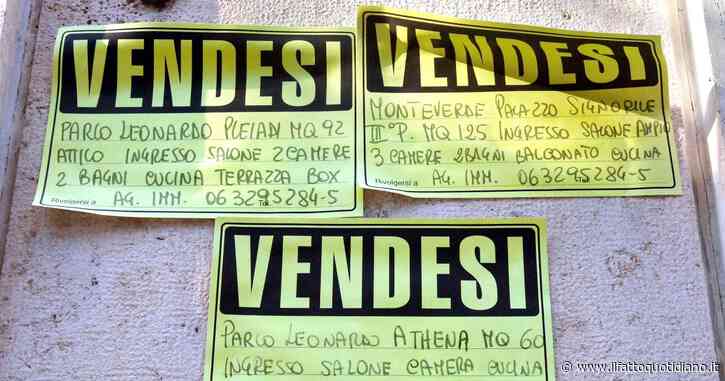 VENDESI
PARCO LEONARDO PLEIADI MQ 92
ATTICO INGRESSO SALONE 2 CAMERE
2 BAGNI CUCINA TERRAZZA BOX
Rivolgersi a AG. IMM. Tel. 063295284-5
VENDESI
MONTEVERDE PALAZZO SIGNORILE
III° P. MQ 125 INGRESSO SALONE AMPIO
3 CAMERE 2 BAGNI BALCONATO CUCINA
Rivolgersi a AG. IMM. Tel. 063295284-5
VENDESI
PARCO LEONARDO ATHENA MQ 60
INGRESSO SALONE CAMERA CUCINA
www.ilfattoquotidiano.it